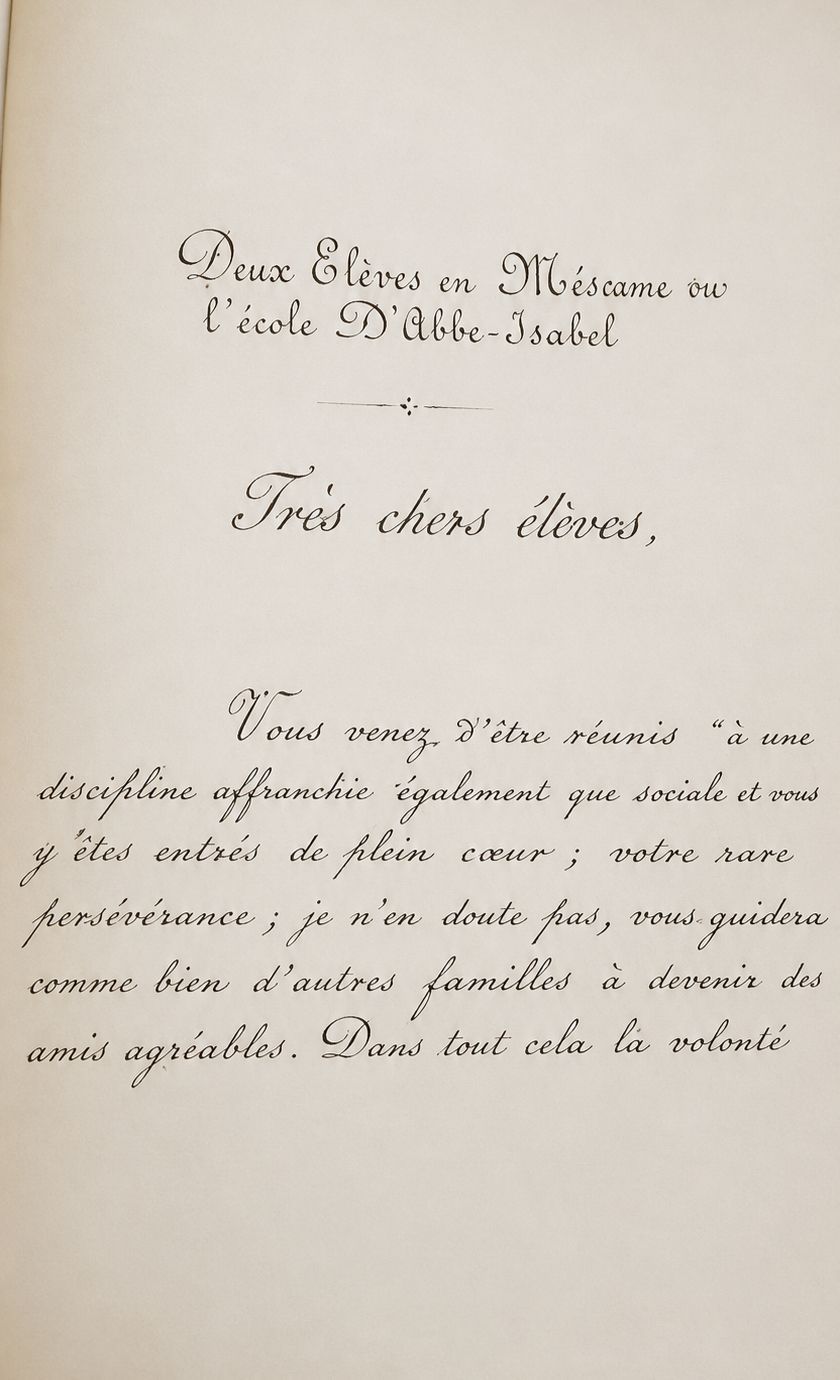 Deux Elèves en Méscame ou
l'école D'Abbe-Isabel
Très chers élèves,
Vous venez d'être réunis “à une
discipline affranchie également que sociale et vous
y êtes entrés de plein cœur ; votre rare
persévérance ; je n'en doute pas, vous guidera
comme bien d'autres familles à devenir des
amis agréables. Dans tout cela la volonté